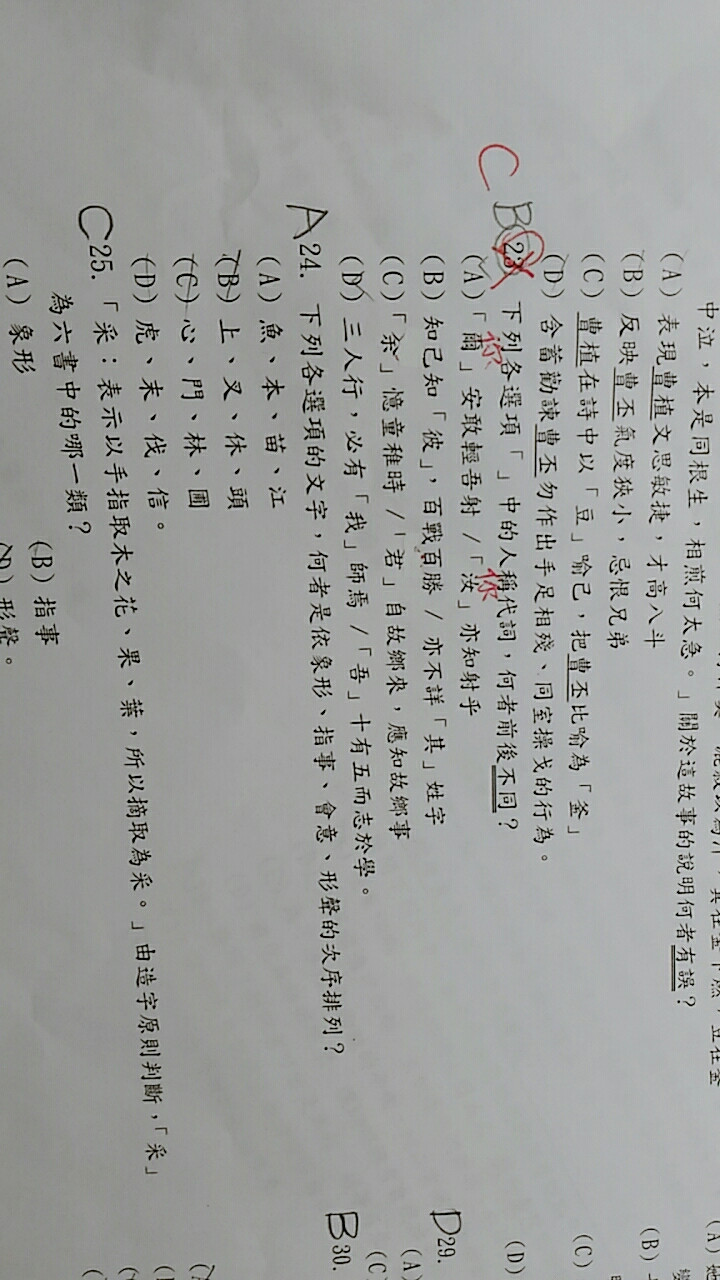 中泣，本是同根生，相煎何太急。」關於這故事的說明何者有誤？
(A) 表現曹植文思敏捷，才高八斗
(B) 反映曹丕氣度狹小，忌恨兄弟
(C) 曹植在詩中以「豆」喻己，把曹丕比喻為「釜」
(D) 含蓄勸諫曹丕勿作出手足相殘、同室操戈的行為。
C B 23. 下列各選項「」中的人稱代詞，何者前後不同？
你 你
(A)「爾」安敢輕吾射 /「汝」亦知射乎
(B) 知己知「彼」，百戰百勝 / 亦不詳「其」姓字
(C)「余」憶童稚時 /「君」自故鄉來，應知故鄉事
(D) 三人行，必有「我」師焉 /「吾」十有五而志於學。
A 24. 下列各選項的文字，何者是依象形、指事、會意、形聲的次序排列？
(A) 魚、本、苗、江
(B) 上、叉、休、頭
(C) 心、門、林、圃
(D) 虎、末、伐、信。
C 25. 「采：表示以手指取木之花、果、葉，所以摘取為采。」由造字原則判斷，「采」
為六書中的哪一類？
(A) 象形
(B) 指事
(D) 形聲。
(A)
(B)
(C)
(D)
D 29.
(A)
(C)
B 30.